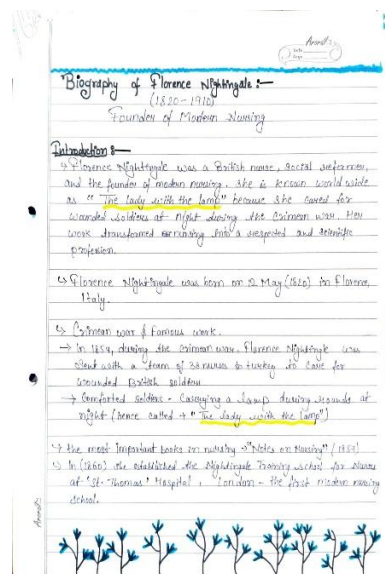 Biography of Florence Nightingale :-
(1820-1910)
Founder of Modern Nursing
Introduction :-
Florence Nightingale was a British nurse, social reformer,
and the founder of modern nursing. She is known world wide
as "The lady with the lamp" because she cared for
wounded soldiers at night during the Crimean war. Her
work transformed nursing into a respected and scientific
profession.
↳ Florence Nightingale was born on 12 May (1820) in Florence,
Italy.
↳ Crimean war & famous work.
→ In 1854, during the Crimean war. Florence Nightingale was
sent with a team of 38 nurses to turkey to care for
wounded British soldiers
→ Comforted soldiers - Carrying a lamp during rounds at
night (hence called → "The lady with the lamp")
↳ the most important books in nursing → "Notes on Nursing" (1859)
↳ In (1860) she established the Nightingale Training school for Nurses
at 'St. Thomas' Hospital, London - the first modern nursing
school.